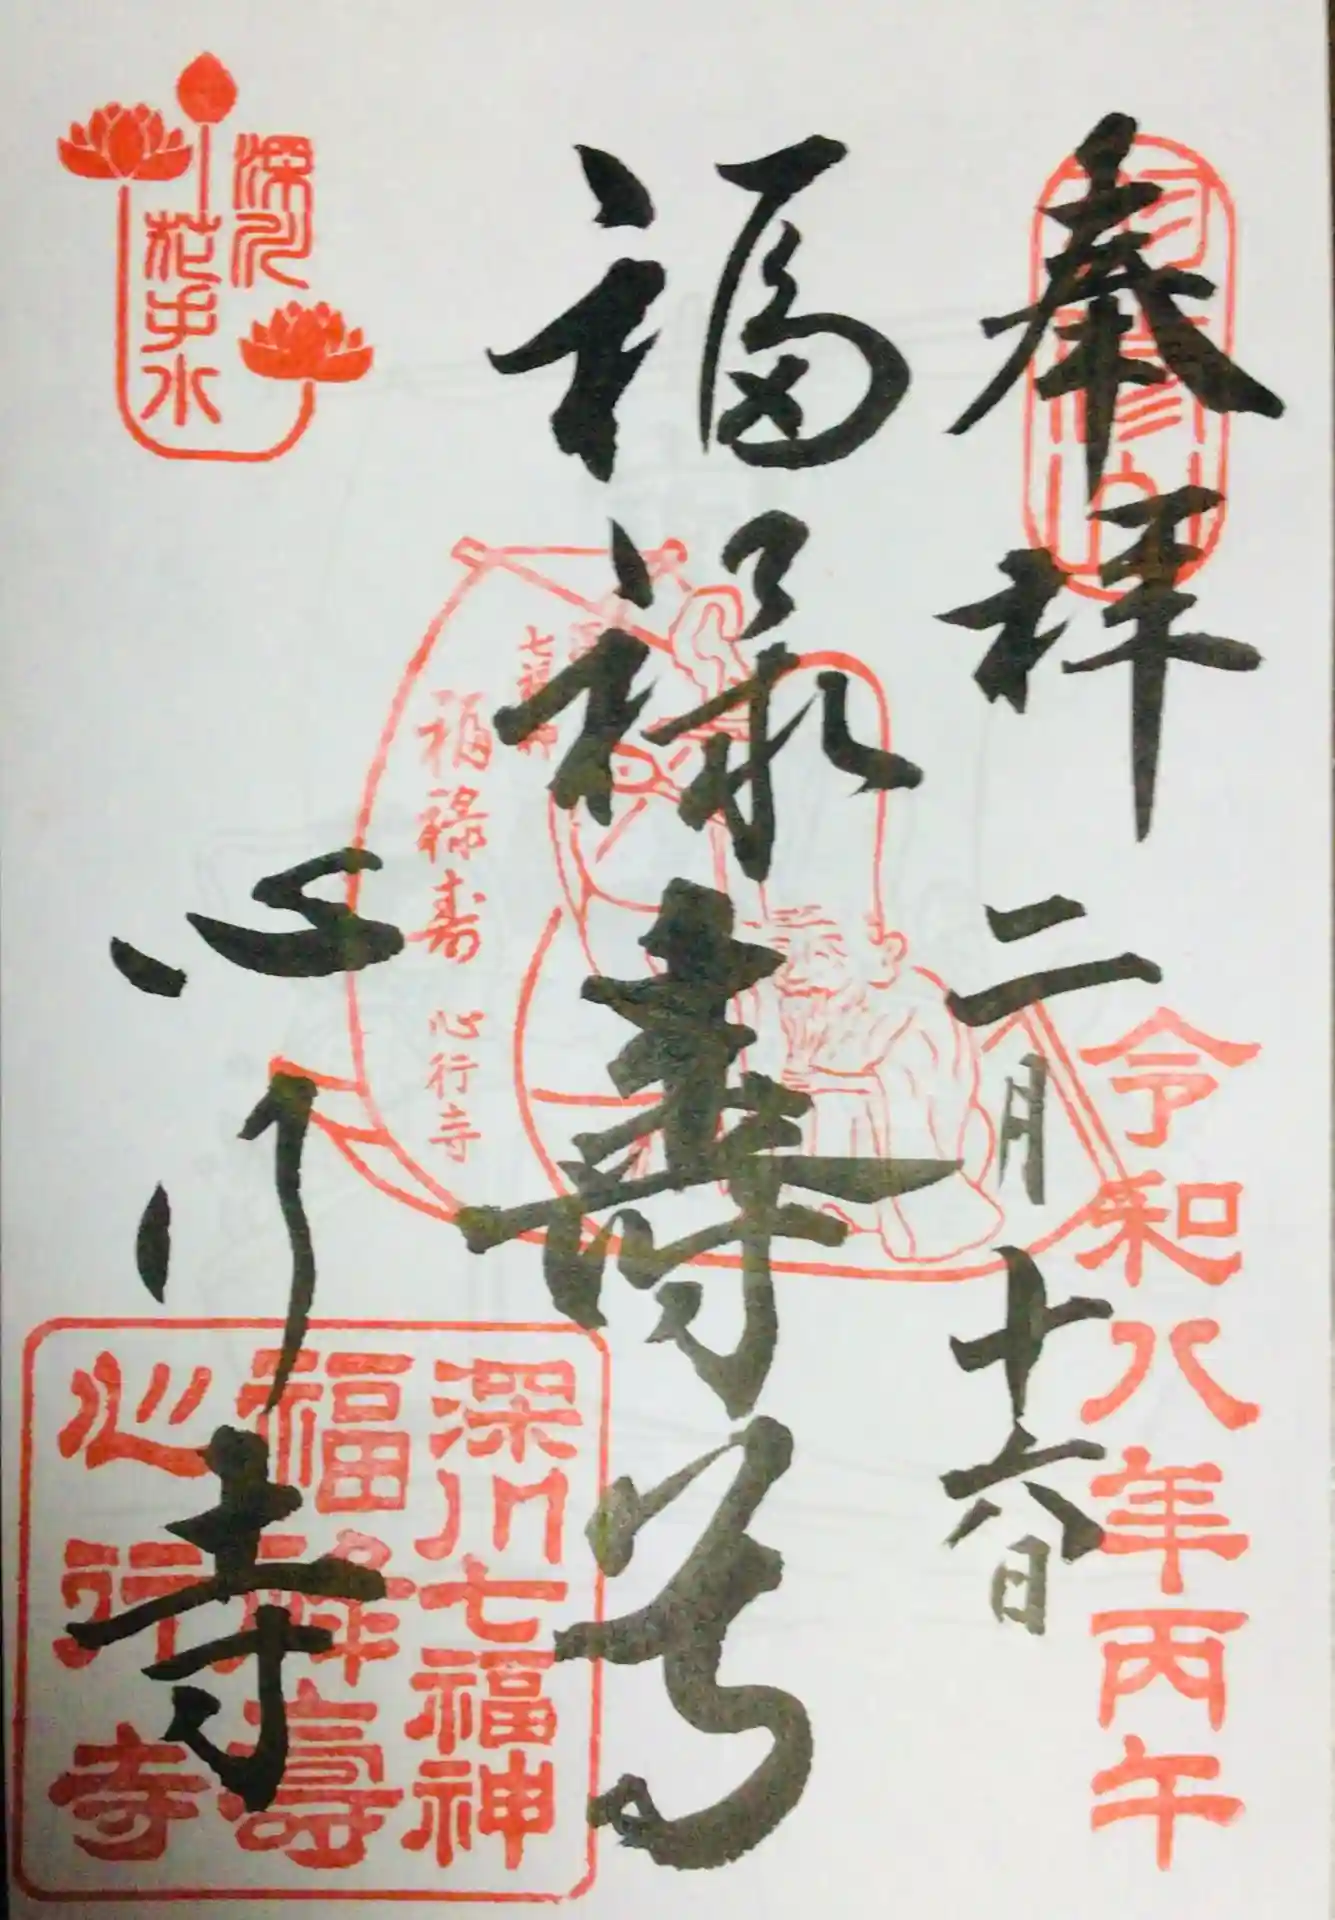 奉拝
二月十六日
令和八年丙午
福禄寿尊
心行寺
深川
花手水
七福神
福禄寿 心行寺
深川七福神
福禄壽
心行寺